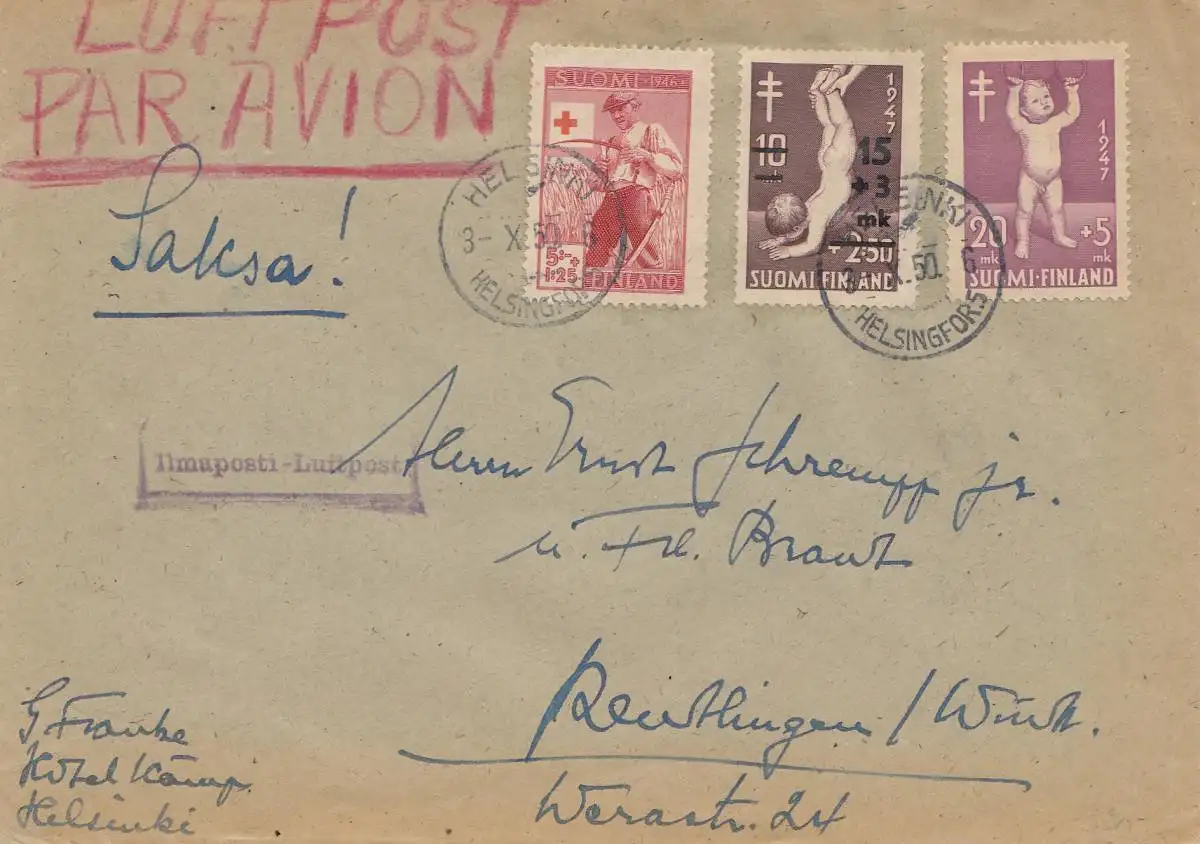 LUFTPOST
PAR AVION
Saksa!
SUOMI 1946
5:-+
1:25 FINLAND
10 15
+3
mk
+2:50
1947
SUOMI·FINLAND
1947
20 +5
mk mk
SUOMI·FINLAND
HELSINKI
3-X.50.-6
HELSINGFORS
HELSINKI
3-X.50.-6
HELSINGFORS
Ilmaposti-Luftpost
Herrn Ernst Schrempp jr.
u. Frl. Braut
Reutlingen / Württ.
Werastr. 24
G Franke
Hotel Kämp.
Helsinki